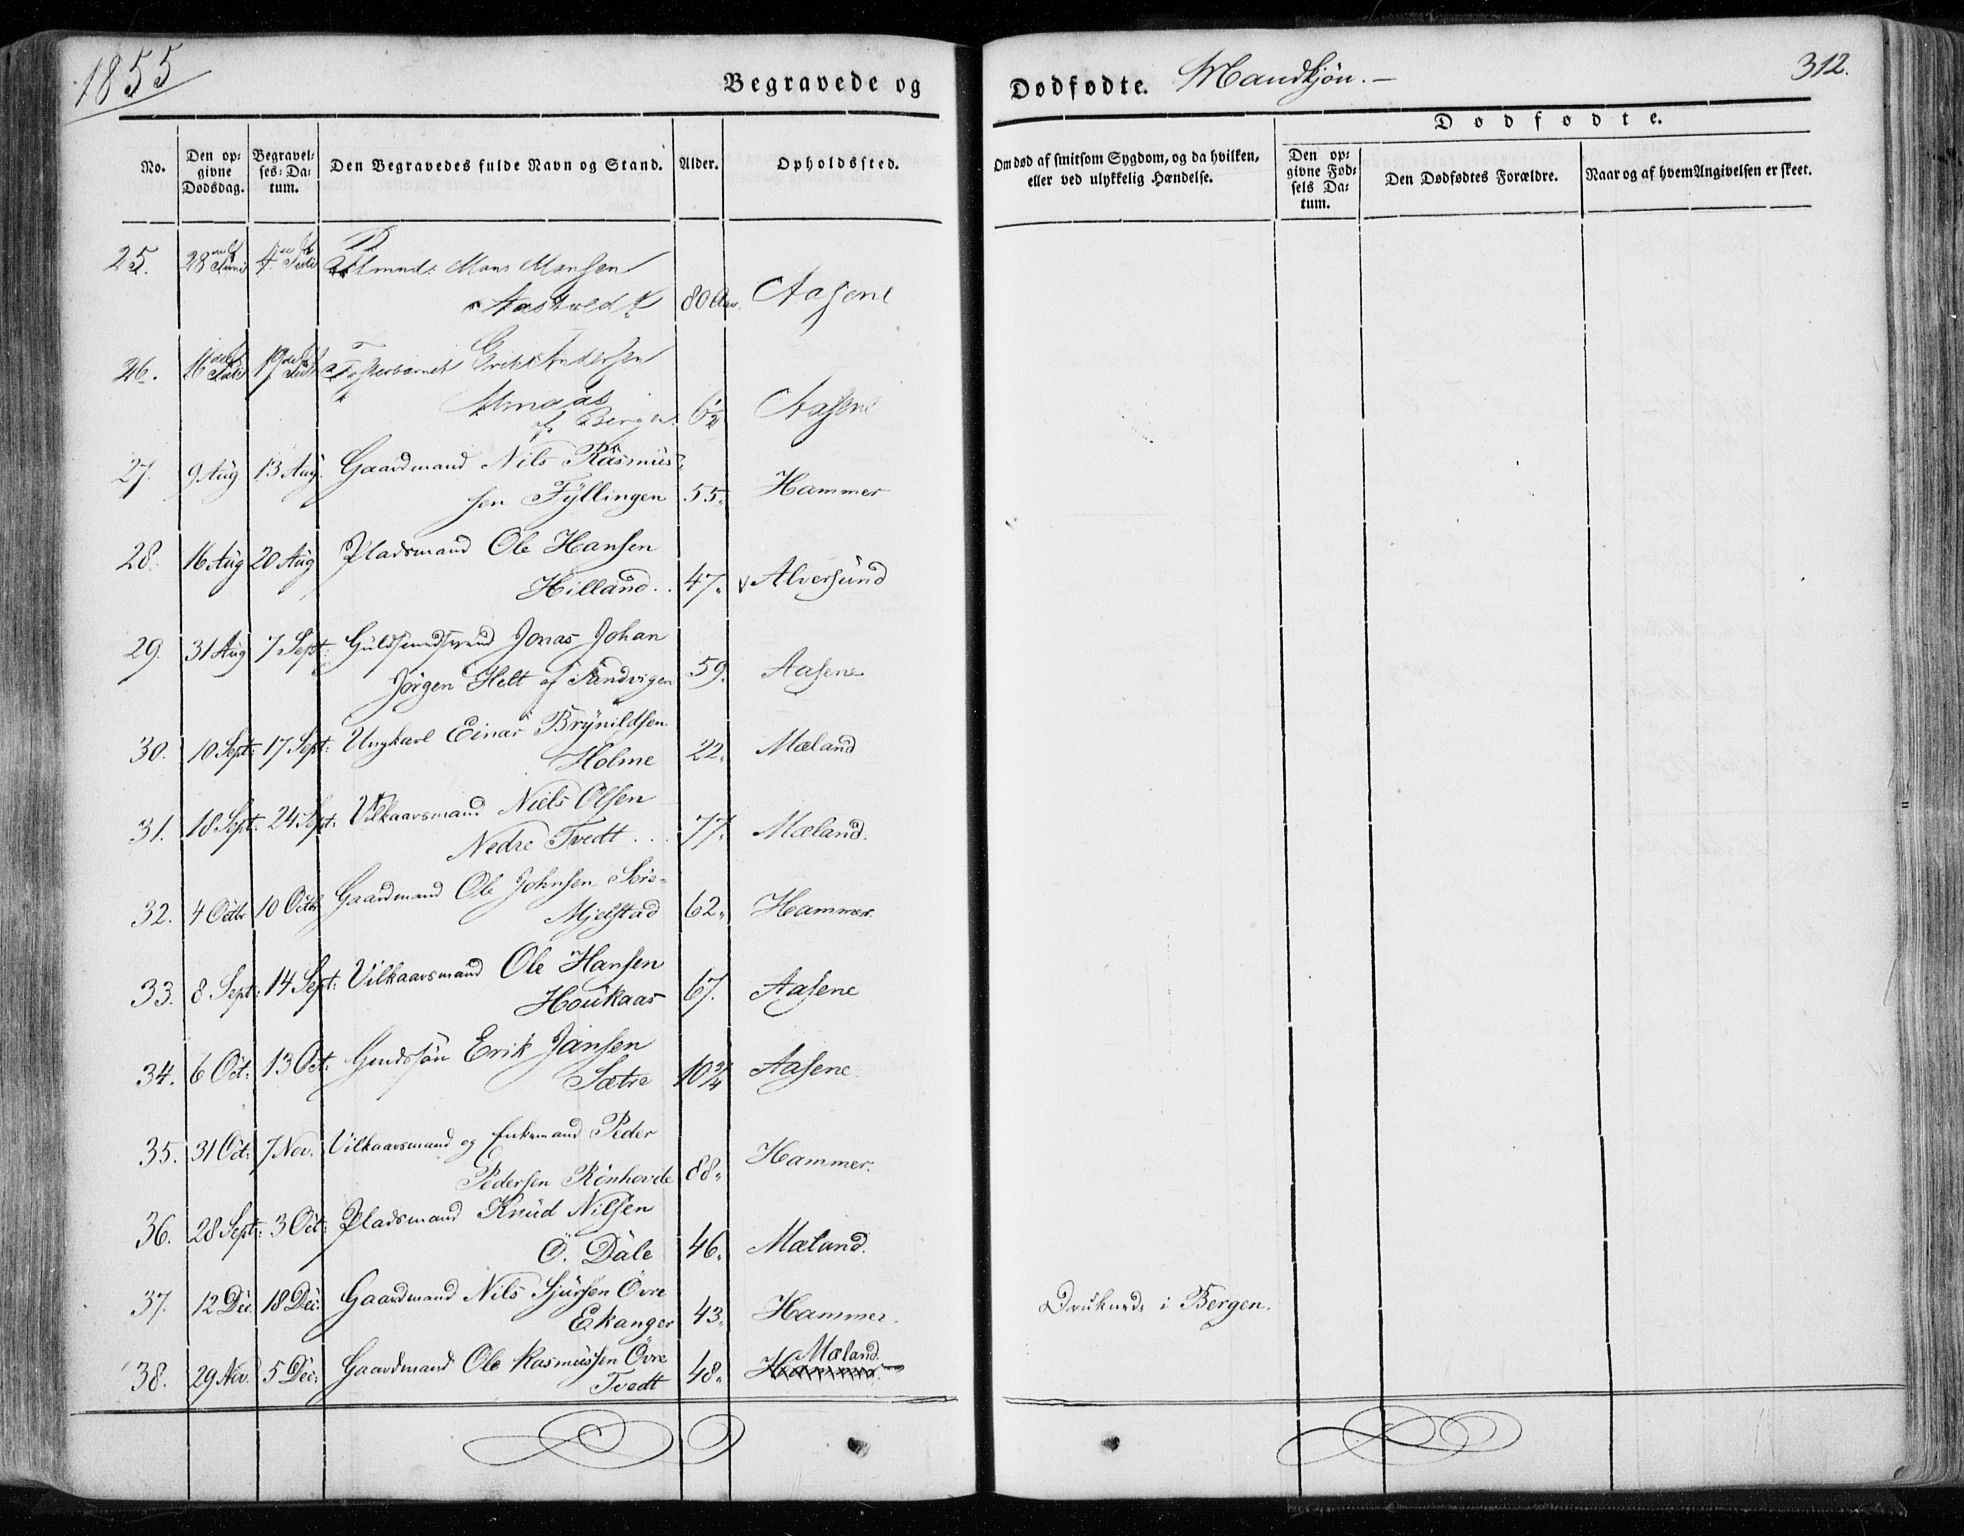 1855
Begravede og Dødfødte. Mandkjøn.
312.
Dødfødte.
No.
Den op-
givne
Dødsdag.
Begravel-
ses-Da-
tum.
Den Begravedes fulde Navn og Stand.
Alder.
Opholdssted.
Om død af smitsom Sygdom, og da hvilken,
eller ved ulykkelig Hændelse.
Den op-
givne Fød-
sels Da-
tum.
Den Dødfødtes Forældre.
Naar og af hvem Angivelsen er skeet.
25. 28 Juni 4 Juli Mons Monsen
80 Aar. Aasene
26. 16 Juli 19 Juli Fosterbarnet Andersen
af Bergen 6½ Aasene
27. 9 Aug 13 Aug. Gaardmand Nils Rasmus-
sen Fyllingen 55. Hammer
28. 16 Aug 20 Aug Pladsmand Ole Hansen
Hilland. 47. Alversund
29. 31 Aug 7 Sept: Guldsmedsvend Jonas Johan
Jørgen Helt af Sandvigen 59. Aasene
30. 10 Sept: 17 Sept: Ungkarl Einar Brynildsen
Holme 22. Mæland
31. 18 Sept: 24 Sept: Vilkaarsmand Niels Olsen
Nedre Tvedt . . . 77. Mæland.
32. 4 Octbr 10 Octbr Gaardmand Ole Johnsen Søre-
Mjelstad 62. Hammer.
33. 8 Sept: 14 Sept: Vilkaarsmand Ole Hansen
Houkaas 67. Aasene
34. 6 Oct: 13 Oct: Erik Jansen
Sætre 10¾ Aasene.
35. 31 Oct: 7 Nov. Vilkaarsmand og Enkemand Peder
Pedersen Rönhovde 88. Hammer.
36. 28 Sept: 3 Oct: Pladsmand Knud Nilsen
Ö. Dale 46. Mæland.
37. 12 Dec. 18 Dec: Gaardmand Nils Sjursen Övre
Ekanger 43. Hammer. Druknede i Bergen.
38. 29 Nov. 5 Dec: Gaardmand Ole Rasmussen Övre
Tvedt 48. Hammer. Mæland.